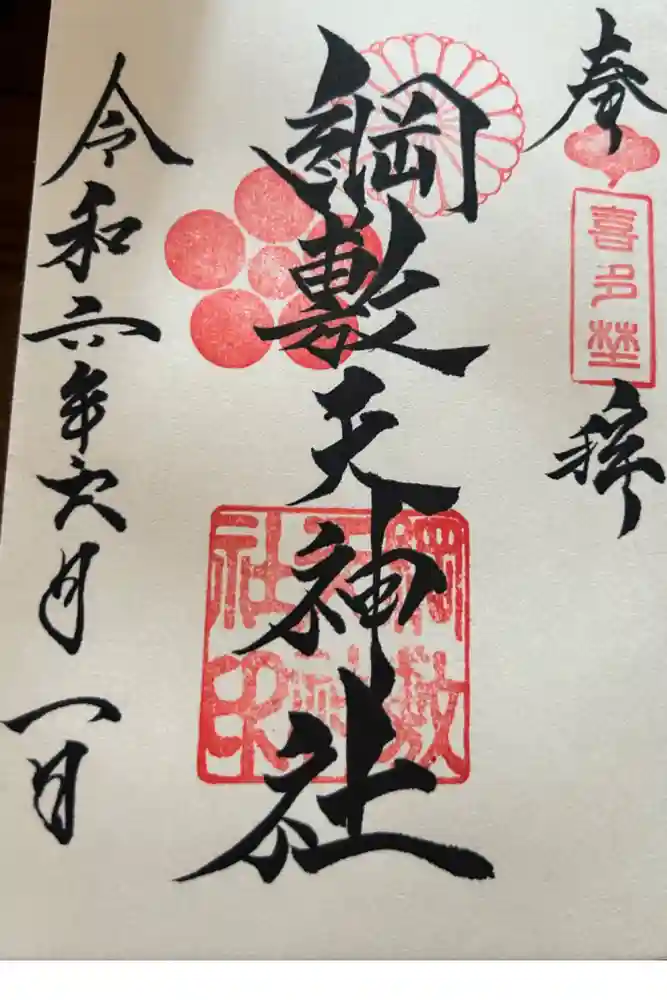 奉
喜多埜
拝
綱敷天神社
綱敷天神社印
令和六年六月一日